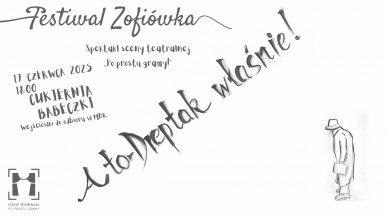 Festiwal Zofiówka
Spektakl sceny teatralnej
"Po prostu gramy!"
17 CZERWCA 2025
18:00
CUKIERNIA
BABECZKI
Wejściówki do odbioru w MDK
A to-Dreptak właśnie!
SCENA TEATRALNA
PO PROSTU GRAMY